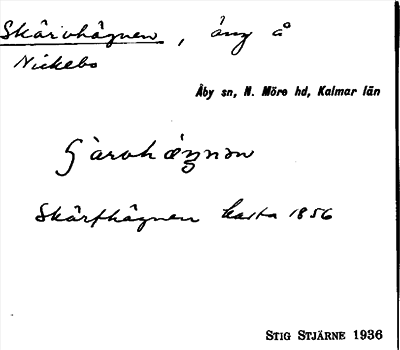 Skärvhägnen, äng å
Nickebo
Åby sn, N. Möre hd, Kalmar län
ʃàrvhæŋnən
Skärfhägnen karta 1856
STIG STJÄRNE 1936